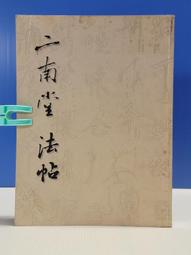 二南堂法帖